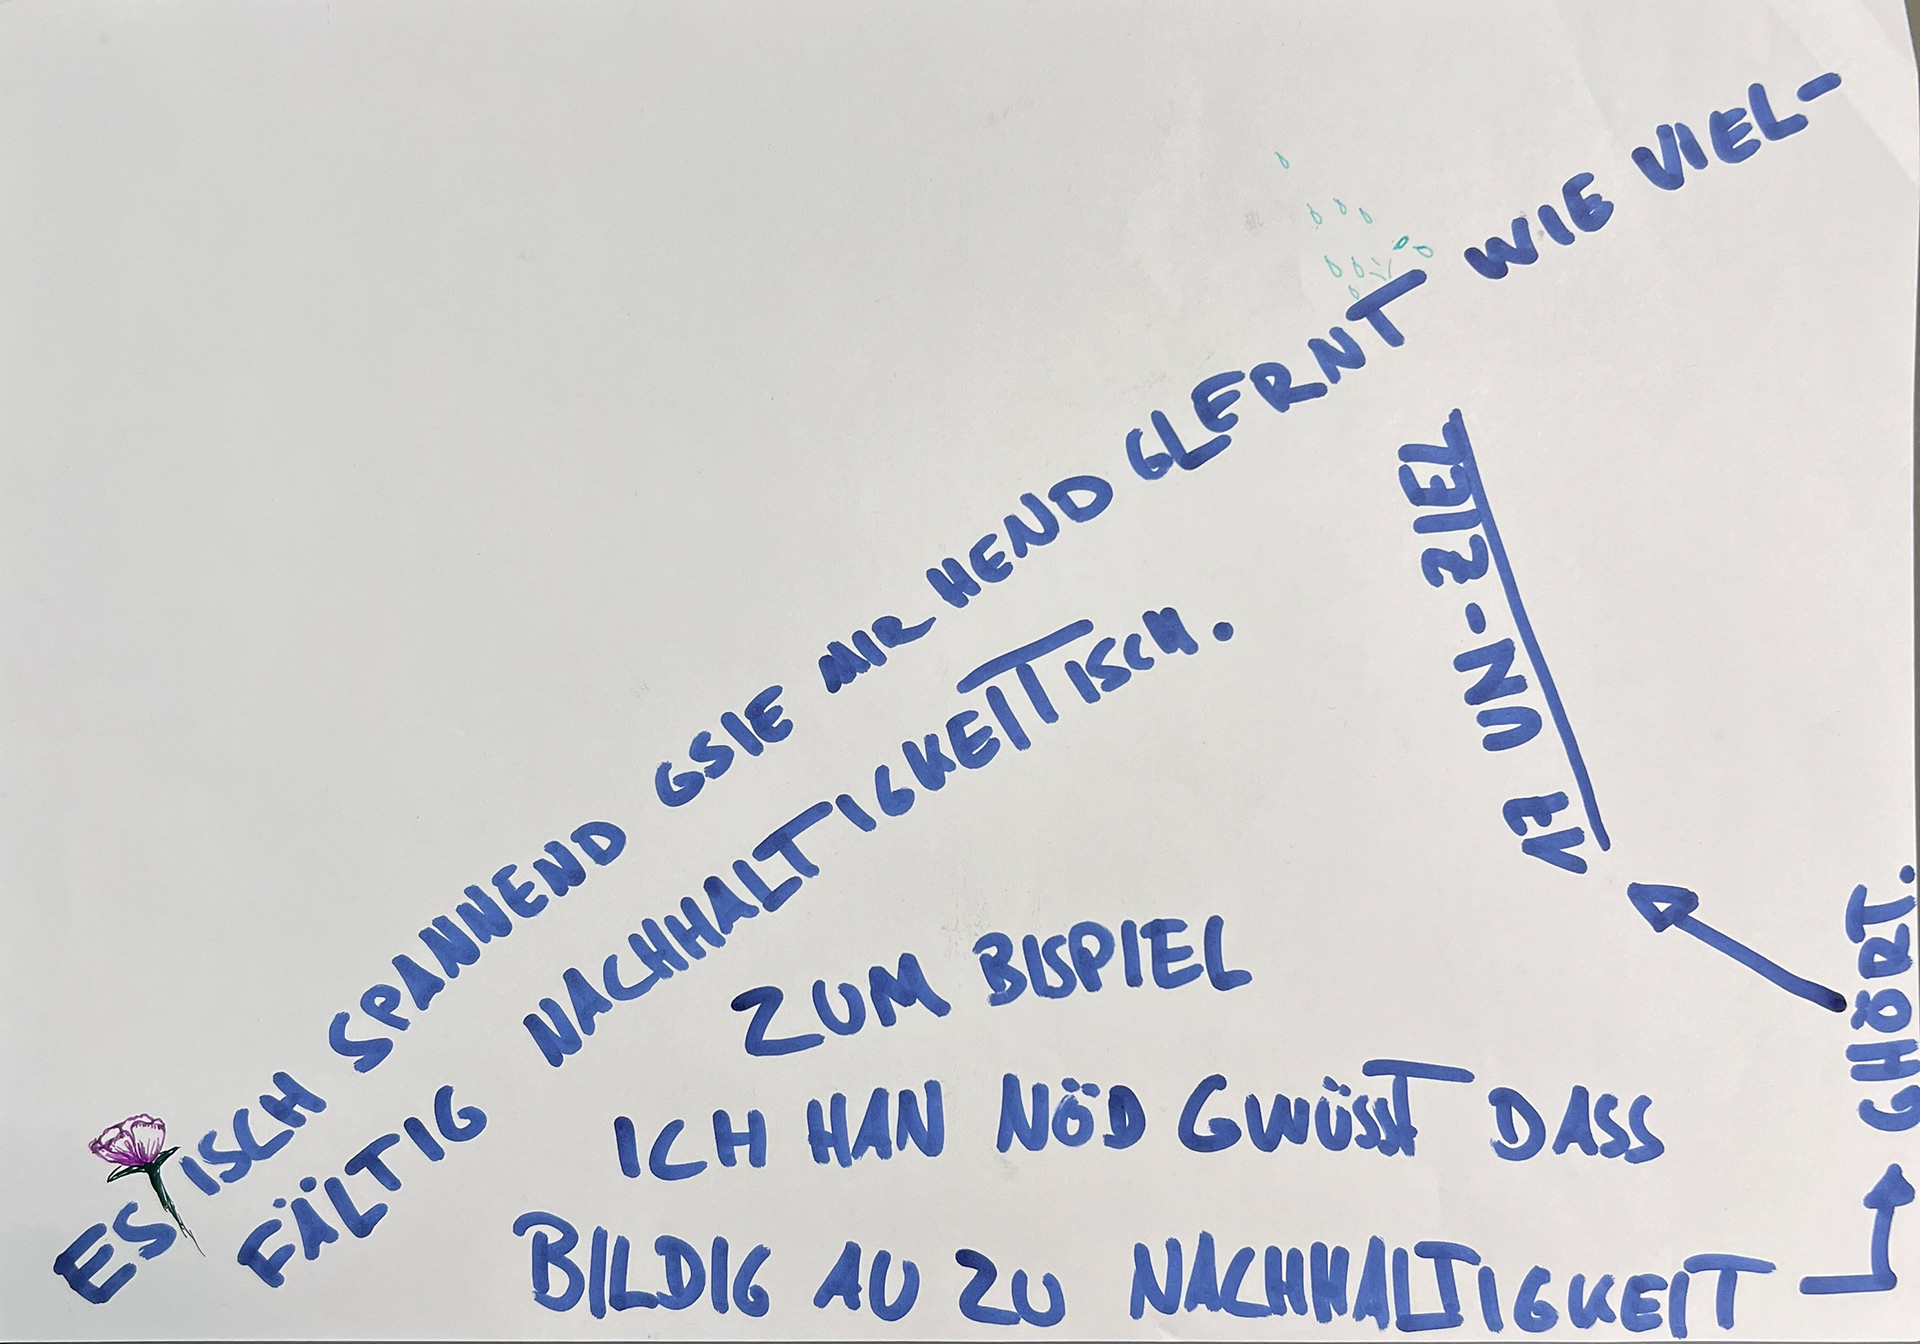 ES ISCH SPANNEND GSIE MIR HEND GLERNT WIE VIEL-
FÄLTIG NACHHALTIGKEIT ISCH.
ZUM BISPIEL
ICH HAN NÖD GWÜSST DASS
BILDIG AU ZU NACHHALTIGKEIT
GHÖRT.
17 UN-ZIEL